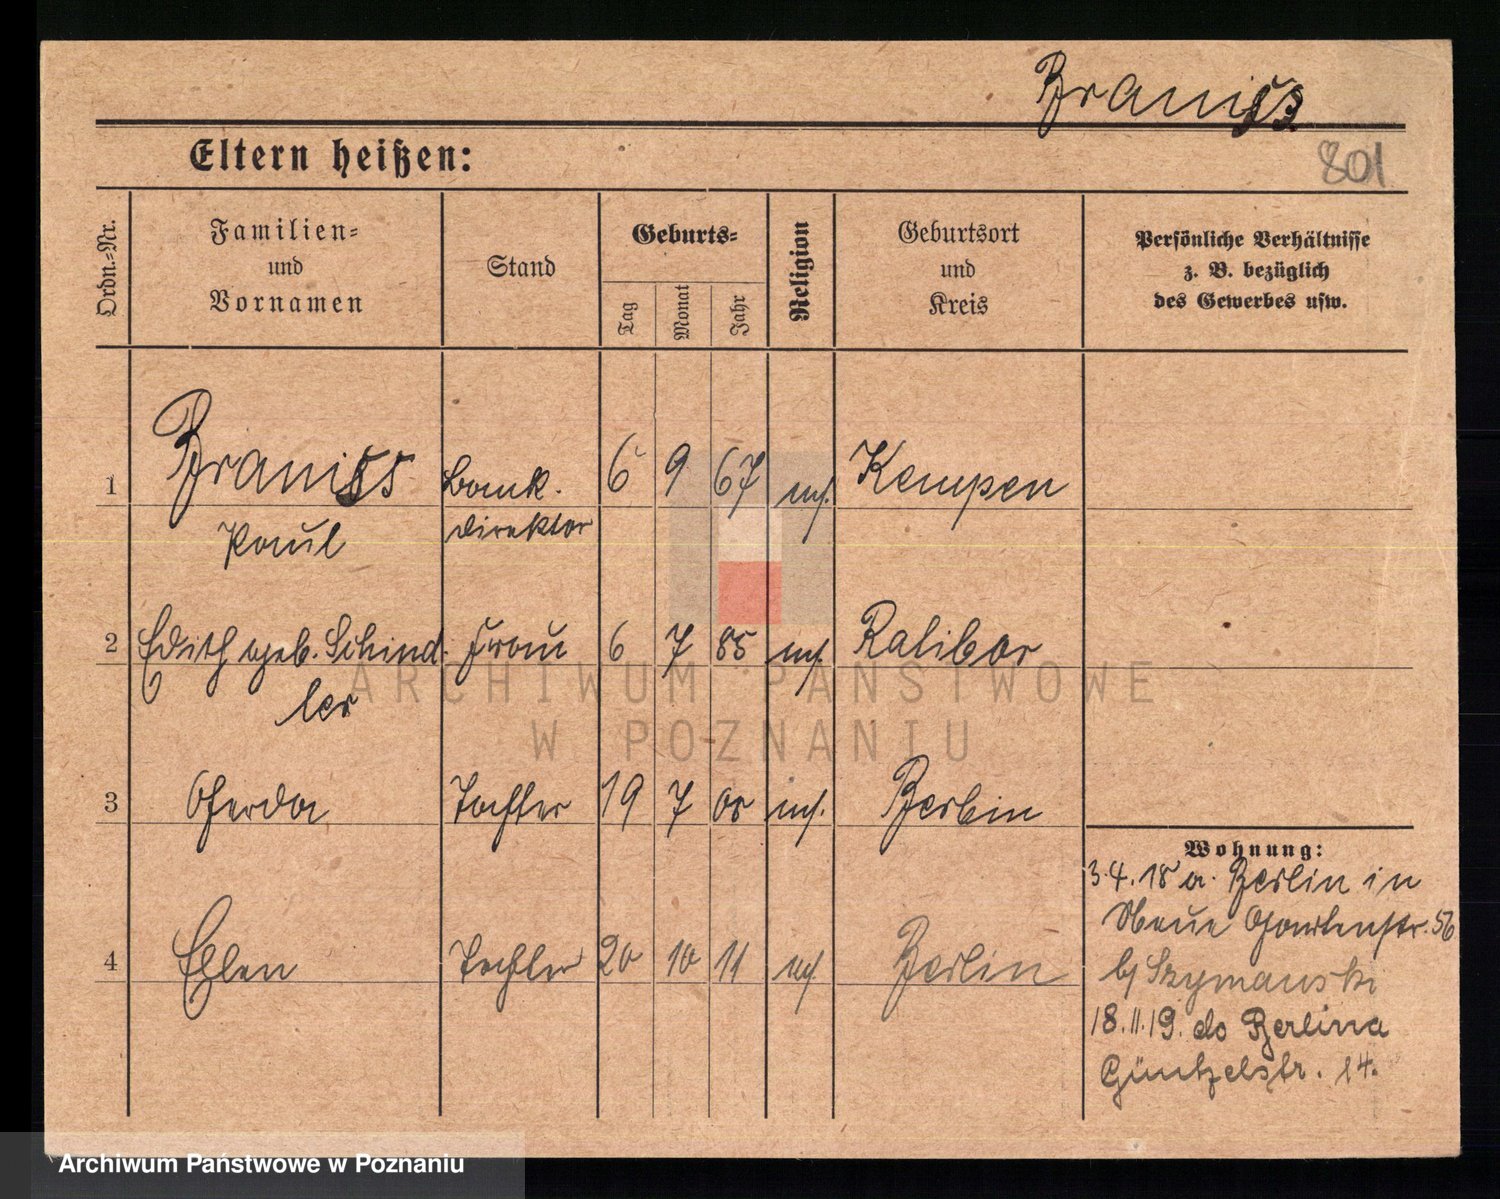 Braniss
801
Eltern heißen:
Ordn.-Nr.
Familien-
und
Vornamen
Stand
Geburts-
Tag
Monat
Jahr
Religion
Geburtsort
und
Kreis
Persönliche Verhältnisse
z. B. bezüglich
des Gewerbes usw.
1 Braniss Bank. 6 9 67 Kempen
Paul direktor
2 Edith geb. Schind- Frau 6 7 85 Ratibor
ler
3 Gerda Tochter 19 7 08 Berlin
4 Ellen Tochter 20 10 11 Berlin
Wohnung:
3.4.18 a. Berlin in
Neue Gartenstr. 56
b/ Szymanski
18.11.19. do Berlina
Güntzelstr. 14.
ARCHIWUM PAŃSTWOWE
W POZNANIU
Archiwum Państwowe w Poznaniu